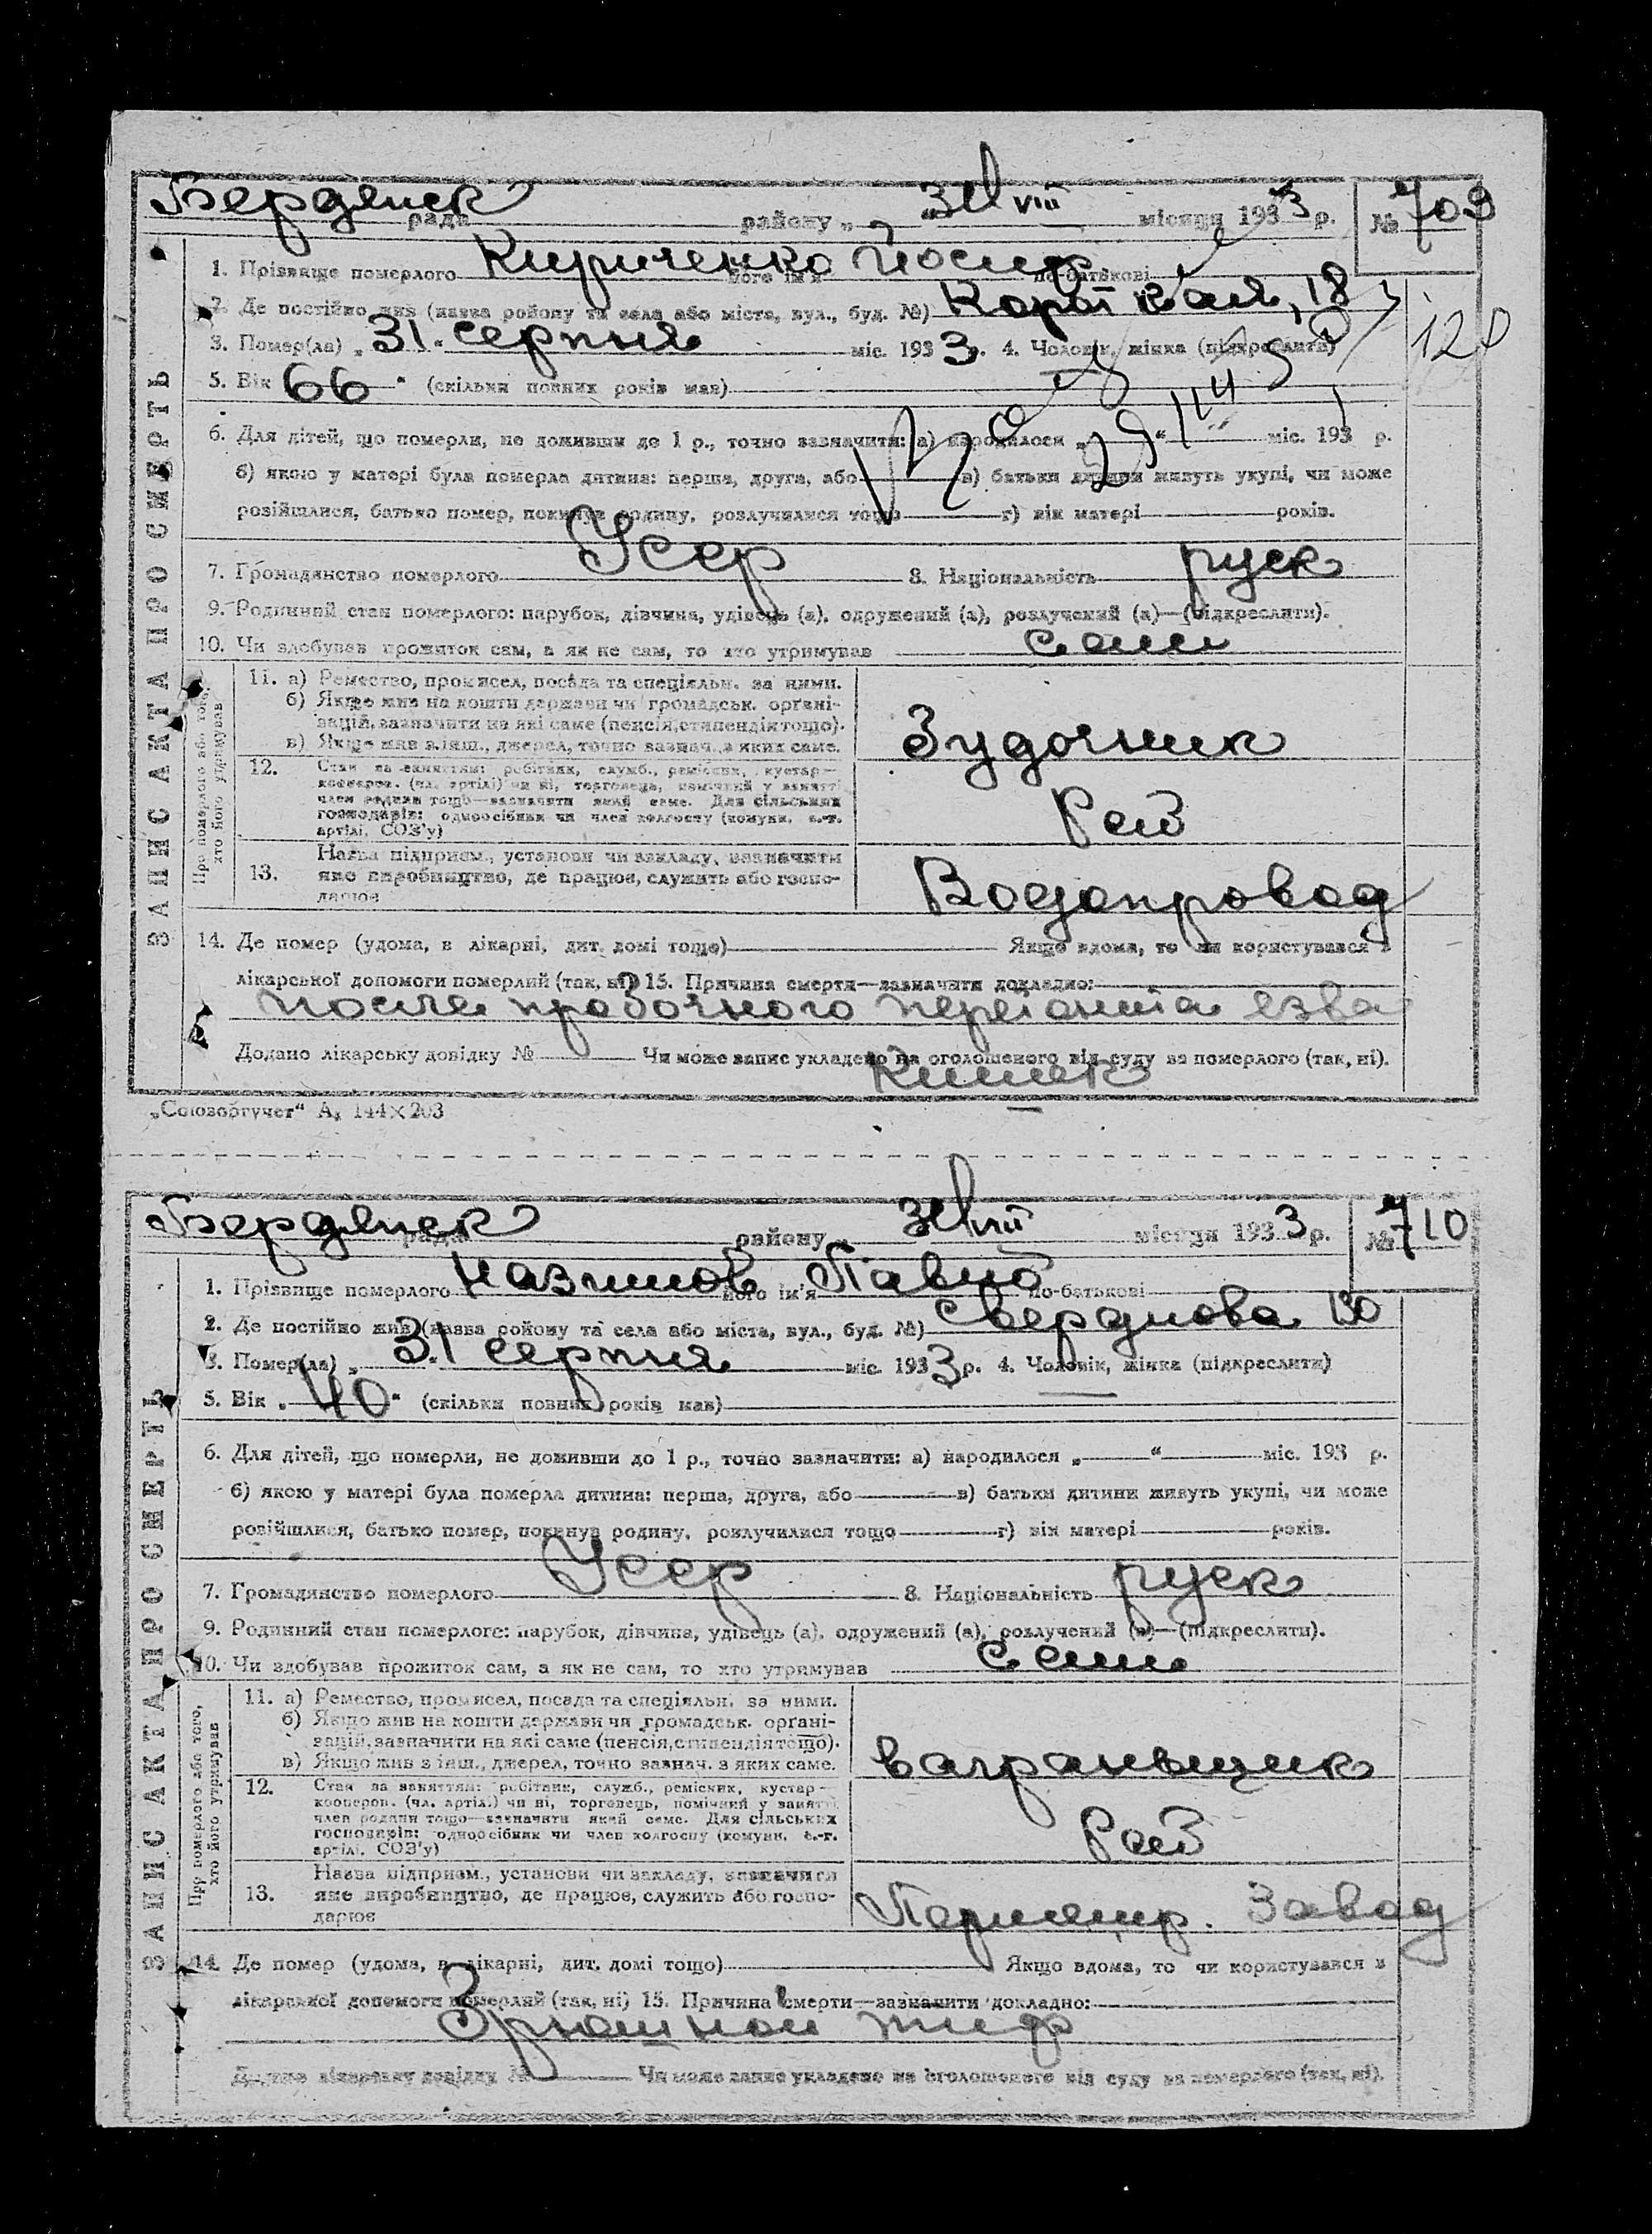 Бердянск рада району „ 31 VIII місяця 1933 р. № 709
1. Прізвище померлого Кириченко його ім'я Йосиф по-батькові
2. Де постійно жив (назва району та села або міста, вул., буд. №) Короткая, 18
3. Помер(ла) „ 31 " серпня міс. 1933 р. 4. Чоловік, жінка (підкреслити) 120
5. Вік 66 " (скільки повних років мав)
6. Для дітей, що померли, не доживши до 1 р., точно зазначити: а) народилося „ " міс. 193 р.
б) якою у матері була померла дитина: перша, друга, або в) батьки дитини живуть укупі, чи може
розійшлися, батько помер, покинув родину, розлучилися тощо г) вік матері років.
7. Громадянство померлого Усср 8. Національність руск
9. Родинний стан померлого: парубок, дівчина, удівець (а), одружений (а), розлучений (а)—(підкреслити).
10. Чи здобував прожиток сам, а як не сам, то хто утримував сам
11. а) Ремество, промисел, посада та спеціяльн. за ними.
б) Якщо жив на кошти держави чи громадськ. органі-
зацій, зазначити на які саме (пенсія, стипендія тощо).
в) Якщо жив з інш., джерел, точно зазнач. з яких саме.
12. Стан за заняттям: робітник, служб., ремісник, кустар—
кооперов. (чл. артілі) чи ні, торговець, помічний у занятті
член родини тощо—зазначити який саме. Для сільських
господарів: одноосібник чи член колгоспу (комуни, с.-г.
артілі, СОЗ'у)
Роб
13. Назва підприєм., установи чи закладу, зазначити
яке виробництво, де працює, служить або госпо-
дарює
Водопровод
14. Де помер (удома, в лікарні, дит. домі тощо) Якщо вдома, то чи користувався з
лікарської допомоги померлий (так, ні) 15. Причина смерти—зазначити докладно:
после язва
Додано лікарську довідку № Чи може запис укладено на оголошеного від суду за померлого (так, ні).
кишек
„Союзоргучет" А, 144×203
ЗАПИС АКТА ПРО СМЕРТЬ
Про померлого або того,
хто його утримував
Бердянск рада району „ 31 VIII місяця 1933 р. № 710
1. Прізвище померлого його ім'я по-батькові
2. Де постійно жив (назва району та села або міста, вул., буд. №) Свердлова 130
3. Помер(ла) „ 31 " серпня міс. 1933 р. 4. Чоловік, жінка (підкреслити)
5. Вік „ 40 " (скільки повних років мав)
6. Для дітей, що померли, не доживши до 1 р., точно зазначити: а) народилося „ " міс. 193 р.
б) якою у матері була померла дитина: перша, друга, або в) батьки дитини живуть укупі, чи може
розійшлися, батько помер, покинув родину, розлучилися тощо г) вік матері років.
7. Громадянство померлого Усср 8. Національність руск
9. Родинний стан померлого: парубок, дівчина, удівець (а), одружений (а), розлучений (а)—(підкреслити).
10. Чи здобував прожиток сам, а як не сам, то хто утримував сам
11. а) Ремество, промисел, посада та спеціяльн. за ними.
б) Якщо жив на кошти держави чи громадськ. органі-
зацій, зазначити на які саме (пенсія, стипендія тощо).
в) Якщо жив з інш., джерел, точно зазнач. з яких саме.
ваграньщик
12. Стан за заняттям: робітник, служб., ремісник, кустар—
кооперов. (чл. артілі) чи ні, торговець, помічний у занятті
член родини тощо—зазначити який саме. Для сільських
господарів: одноосібник чи член колгоспу (комуни, с.-г.
артілі, СОЗ'у)
Роб
13. Назва підприєм., установи чи закладу, зазначити
яке виробництво, де працює, служить або госпо-
дарює
Завод
14. Де помер (удома, в лікарні, дит. домі тощо) Якщо вдома, то чи користувався з
лікарської допомоги померлий (так, ні) 15. Причина смерти—зазначити докладно:
тиф
Додано лікарську довідку № Чи може запис укладено на оголошеного від суду за померлого (так, ні).
ЗАПИС АКТА ПРО СМЕРТЬ
Про померлого або того,
хто його утримував